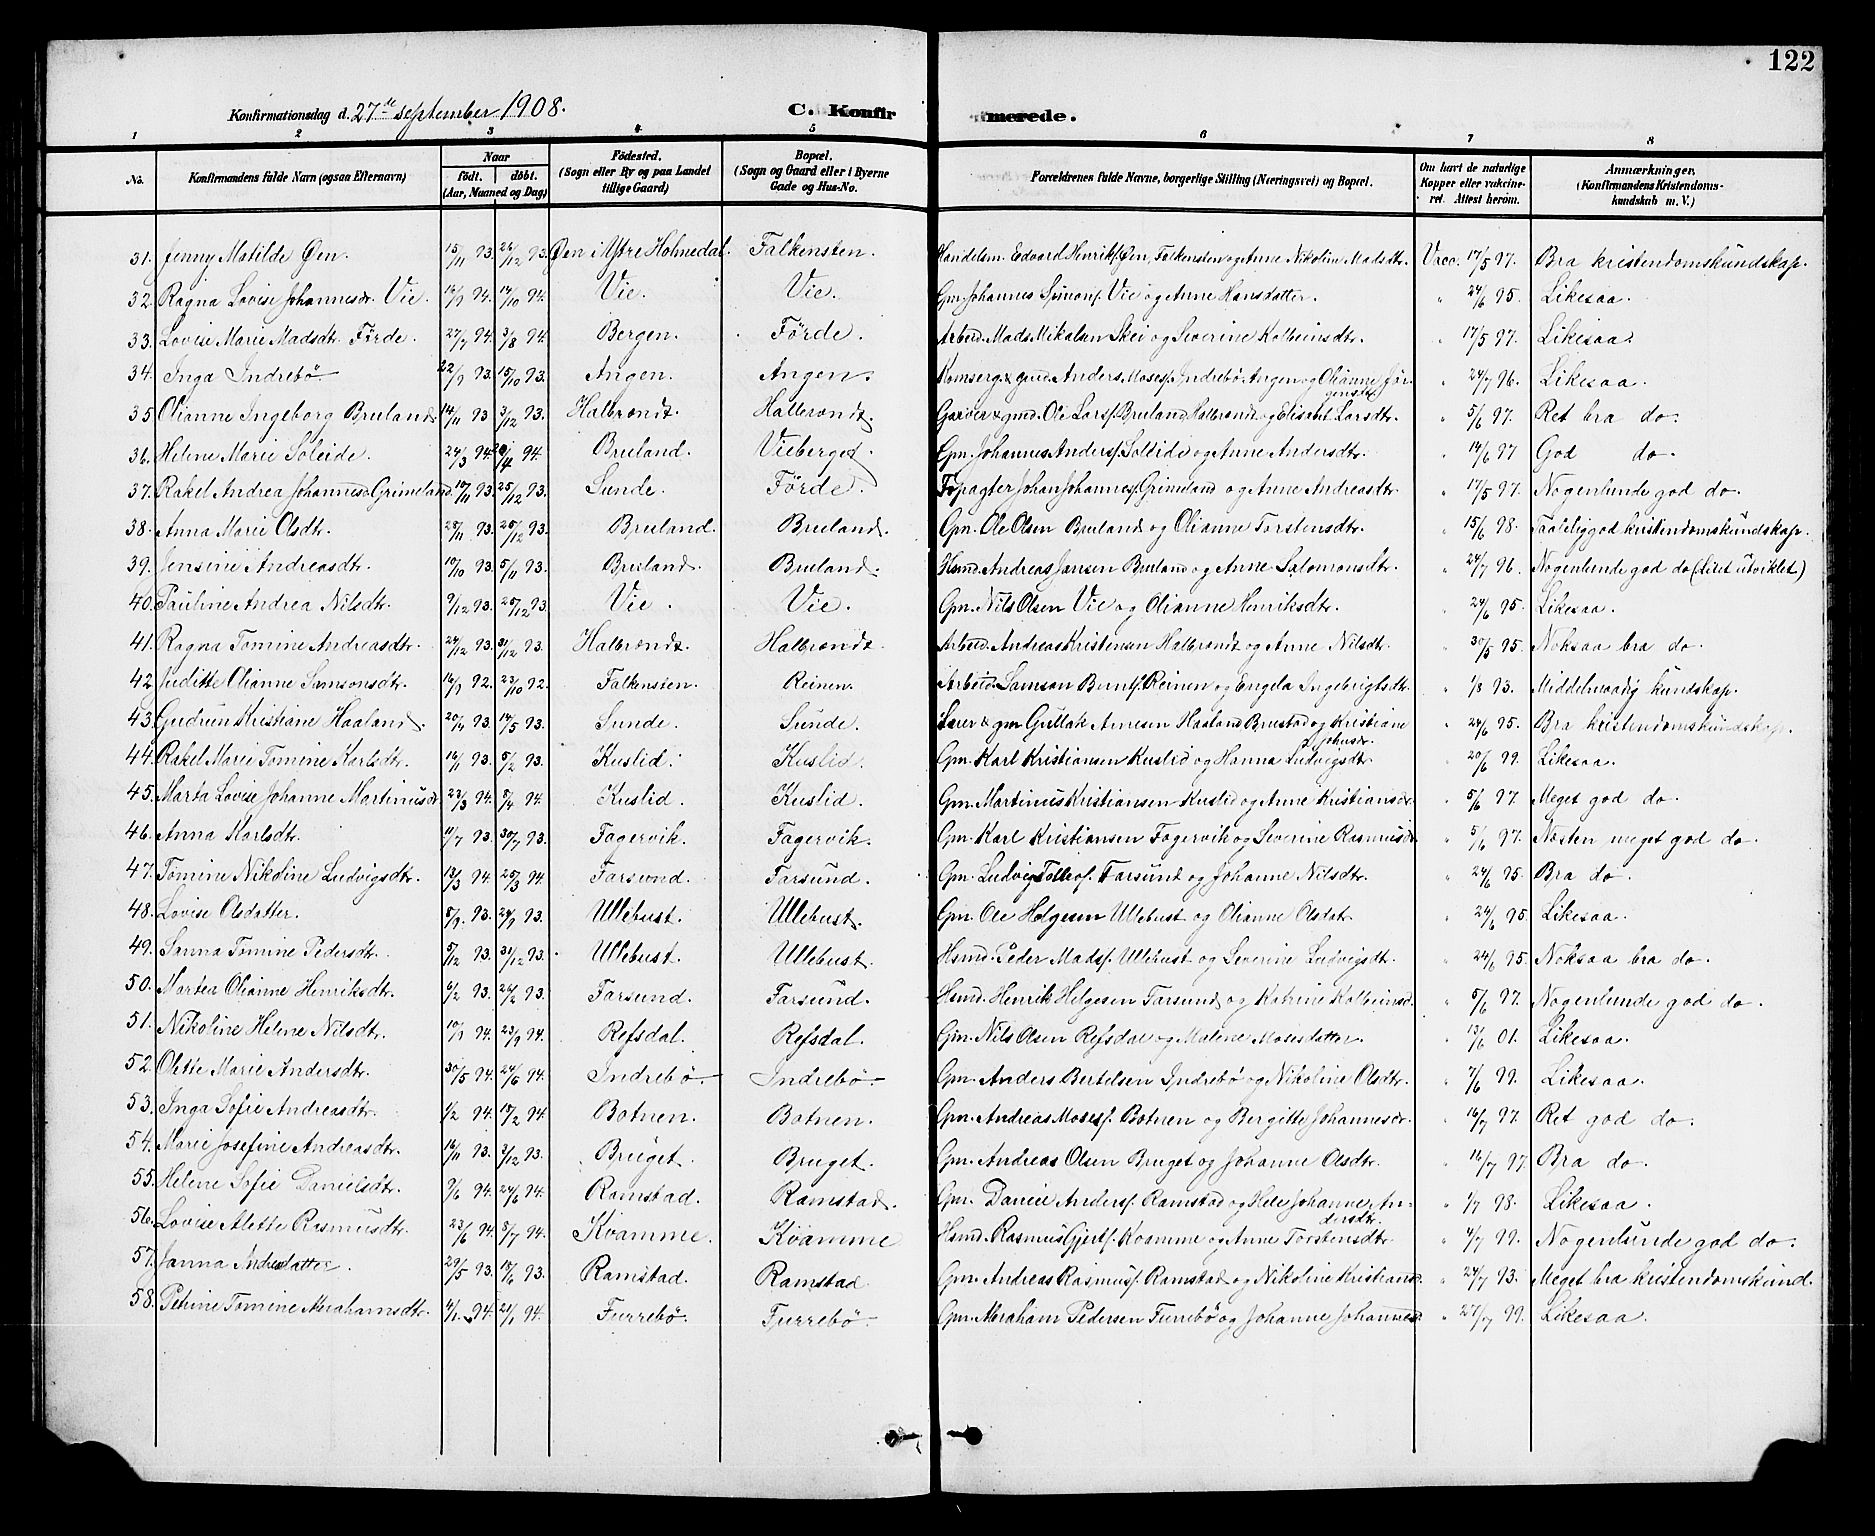 122
Konfirmationsdag d. 27de september 1908.
C. Konfirmerede.
1 2 3 4 5 6 7 8
No. Konfirmandens fulde Navn (ogsaa Efternavn) Naar født. døbt. (Aar, Maaned og Dag) Födested. (Sogn eller By og paa Landet tillige Gaard) Bopæl. (Sogn og Gaard eller i Byerne Gade og Hus-No. Forældrenes fulde Navne, borgerlige Stilling (Næringsvei) og Bopæl. Om havt de naturlige Kopper eller vakcineret. Attest herom. Anmærkninger, (Konfirmandens Kristendomskundskab m. V.)
31. Jenny Matilde Øen. 15/11 93. 26/12 93. Øen i Ytre Holmedal. Falkensten. Handelsm. Edvard Henriks. Øen, Falkensten og Anne Nikoline Madsdtr. Vacc. 17/5 97. Bra kristendomskundskap.
32. Ragna Lovise Johannesdr. Vie. 16/9 94. 14/10 94. Vie. Vie. Gm. Johannes Simons. Vie og Anne Hansdatter. " 24/6 95. Likesaa.
33. Lovise Marie Madsdt. Förde. 27/7 94. 3/8 94. Bergen. Förde. Arbeid. Mads Mikalsen Skei og Severine Kolbeinsdtr. " 17/5 97. Likesaa.
34. Inga Indrebö 22/9 93. 15/10 93. Angen. Angen. & gmd. Anders Moses. Indrebö Angen og Olianne Jörgensdtr " 24/7 96. Likesaa.
35. Olianne Ingeborg Bruland 14/11 93 3/12 93. Halbrendt. Halbrendt. Garver & gmd. Ole Lars. Bruland, Halbrendt og Elisabet Larsdtr. " 5/6 97. Ret bra do.
36. Helene Marie Soleide. 24/3 94. /4 94. Bruland. Vieberget. Gm. Johannes Anders. Solleide og Anne Andersdtr. " 14/6 97 God do.
37. Rakel Andrea Johannesd. Grimeland. 19/11 93. 25/12 93. Sunde. Förde. Fopagter Johan Johannes. Grimeland og Anne Andreasdtr " 17/5 97. Nogenlunde god do.
38. Anna Marie Olsdtr. 25/11 93. 25/12 93. Bruland. Bruland. Gm. Ole Olsen Bruland og Olianne Torstensdtr. " 15/6 98. Taaleliggod kristendomskundskap.
39. Jensine Andreasdtr. 10/10 93. 5/11 93. Bruland. Bruland. Hsmd. Andreas Jansen Bruland og Anne Salomonsdtr. " 24/7 96. Nogenlunde god do (litet utviklet)
40. Pauline Andrea Nilsdtr. 9/12 93. 25/12 93. Vie. Vie. Gm. Nils Olsen Vie og Olianne Henriksdtr. " 24/6 95. Likesaa.
41. Ragna Tomine Andreasdtr. 24/12 93. 31/12 93. Halbrendt. Halbrendt Arbeid. Andreas Kristensen Halbrendt og Anne Nilsdtr. " 30/5 95. Noksaa bra do.
42 Juditte Olianne Samsonsdtr. 16/9 92. 23/10 92. Falkensten. Reinen. Arbeid. Samson Bernts. Reinen og Engela Ingebrigtsdtr. " 1/8 93. Middelmaadig kundskap.
43. Gudrun Kristiane Haaland. 20/4 93 14/5 93. Sunde. Sunde. & gm Gullak Arnesen Haaland Brustad og Kristiane Johansdr. " 24/6 95. Bra kristendomskundskap.
44. Rakel Marie Tomine Karlsdtr. 16/1 93. 5/2 93. Kuslid. Kuslid. Gm. Karl Kristiansen Kuslid og Hanna Ludvigsdtr " 20/6 99. Likesaa.
45. Marta Lovise Johanne Martinusdr 22/3 94. 8/4 94. Kuslid. Kuslid. Gm. Martinus Kristiansen Kuslid og Anne Kristiansdr. " 5/6 97. Meget god do.
46. Anna Karlsdtr. 11/7 93. 30/7 93. Fagervik. Fagervik. Gm. Karl Kristiansen Fagervik og Severine Rasmusdr. " 5/6 97. Næsten meget god do.
47. Tomine Nikoline Ludvigsdtr. 13/3 94. 25/3 94. Farsund. Farsund. Gm. Ludvig Tollefs. Farsund og Johanne Nilsdtr. " 24/6 95. Bra do.
48. Lovise Olsdatter. 5/9. 93. 24/9 93. Ullebust. Ullebust. Gm. Ole Helgesen Ullebust og Olianne Olsdatr " 24/6 95. Likesaa.
49. Sanna Tomine Pedersdtr. 5/12 93. 31/12 93. Ullebust. Ullebust. Hsmd. Peder Mads. Ullebust og Severine Ludvigsdtr. " 24/6 95. Noksaa bra do.
50. Martea Olianne Henriksdtr. 6/2 93. 26/2 93. Farsund. Farsund. Hsmd. Henrik Helgesen Farsund og Katrine Kolbeinsd. " 5/6 97. Nogenlunde god do.
51. Nikoline Helene Nilsdtr. 10/9 94. 23/9 94. Refsdal. Refsdal. Gm. Nils Olsen Refsdal og Malene Mosesdatter. " 13/6 01. Likesaa.
52. Olette Marie Andersdtr. 30/5 94. 24/6 94. Indrebö. Indrebö. Gm. Anders Bertelsen Indrebö og Nikoline Olsdtr. " 7/6 99. Likesaa.
53. Inga Sofie Andreasdtr. 1/2 94. 19/2 94. Botnen. Botnen. Gm. Andreas Moses. Botnen og Bergitte Johannesdr. " 16/7 97. Ret god do.
54. Marie Josefine Andreasdtr. 16/11 93. 3/12 93. Bruget. Bruget. Gm. Andreas Olsen Bruget og Johanne Olsdtr. " 16/7 97. Bra do.
55. Helene Sofie Danielsdtr. 9/6 94. 24/6 94. Ramstad. Ramstad. Gm. Daniel Anders. Ramstad og Johanne Andersdtr. " 1/7 98. Likesaa.
56. Lovise Alette Rasmusdtr. 23/6 94. 8/7 94. Kvamme. Kvamme Hsmd. Rasmus Gjerts. Kvamme og Anne Torstensdtr " 4/7 99. Nogenlunde god do.
57. Janna Andreadatter. 29/5 93. 18/6 93. Ramstad. Ramstad Gm. Andreas Rasmus. Ramstad og Nikoline Kristiansd. " 24/7 93. Meget bra kristendomskund.
58. Petrine Tomine Abrahamsdtr. 4/1. 94. 21/1 94. Furrebö. Furrebö. Gm. Abraham Pedersen Furrebö og Johanne Johannesd. " 27/7 99. Likesaa.